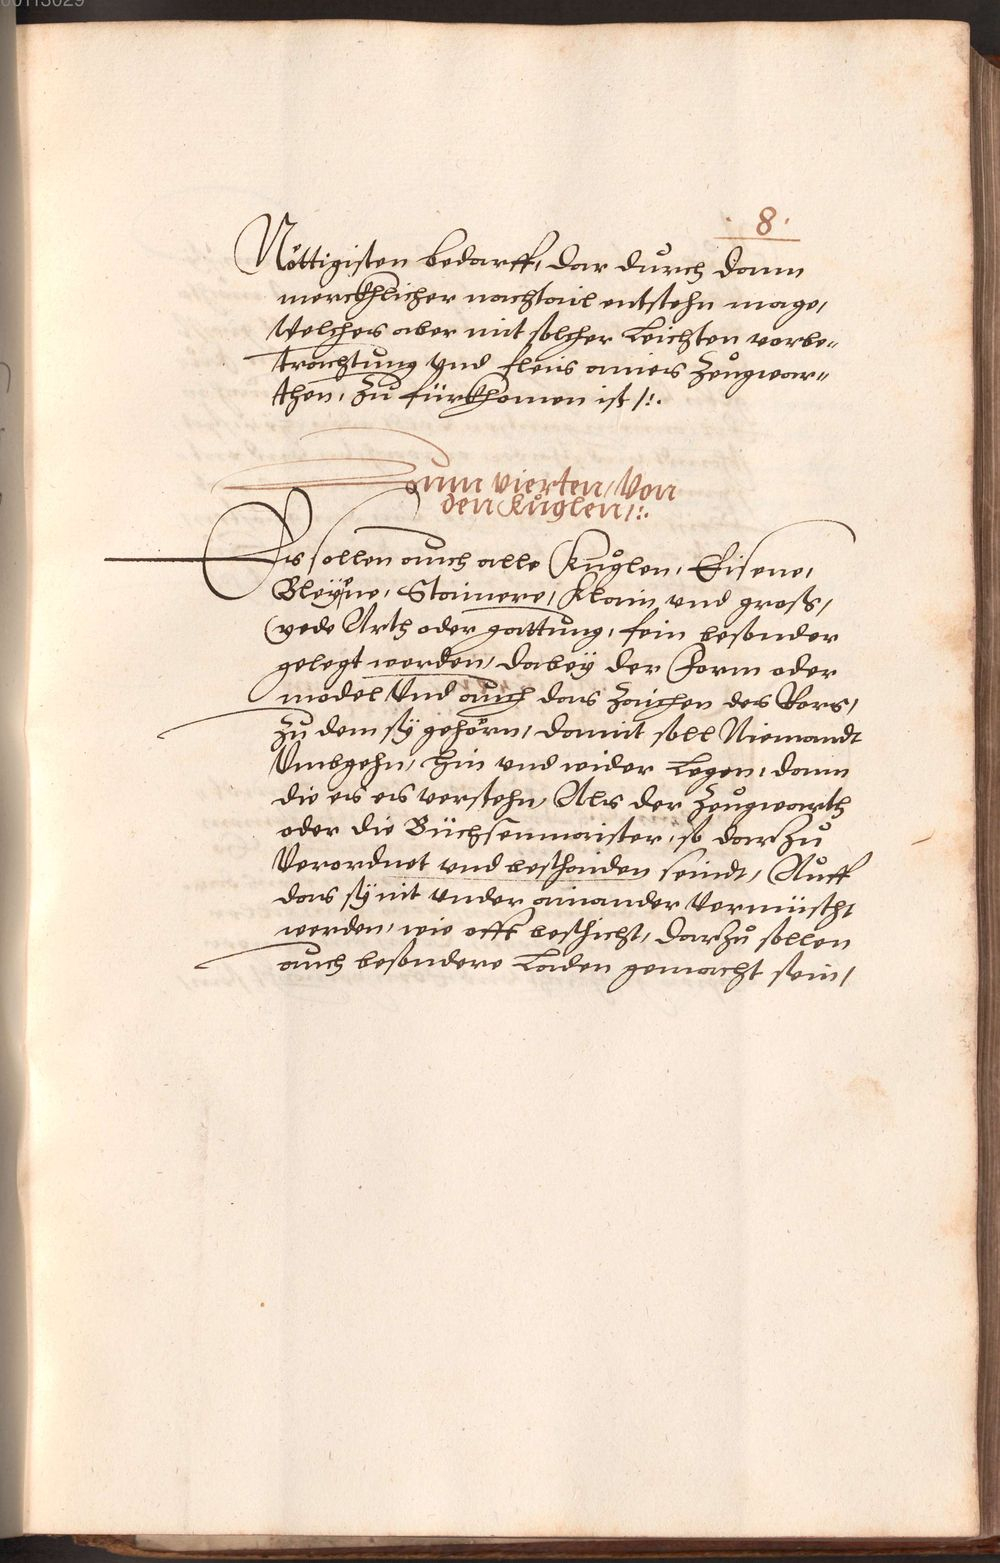 00113029
. 8 .
Nöttigisten bedarff, dar durch dann
merckhlicher nachtail entstehn mage,
Welches aber mit solcher Leichten vorbe„
trachtung Vnd fleis aines Zeugwar„
then, Zu fürkhomen ist /:.
Zum vierten, Von
den Kuglen /:.
Es sollen auch alle Kuglen, Eisene,
Bleyne, Stainere, Klain vnd gross,
yede Arth oder gattung, fein besonder
gelegt werden, dabey der Form oder
model Vnd auch das Zaichen des Rors,
Zu dem sy gehörn, damit soll Niemandt
Vmbgehn, hin vnd wider Legen, dann
die es es verstehn, Als der Zeugwarth
oder die Büchsenmaister, so darzu
Verordnet vnd beschaiden seindt, Auff
das sy nit vnder ainander Vermüscht
werden, wie offt beschicht, darzu sollen
auch besondere Laden gemacht sein,